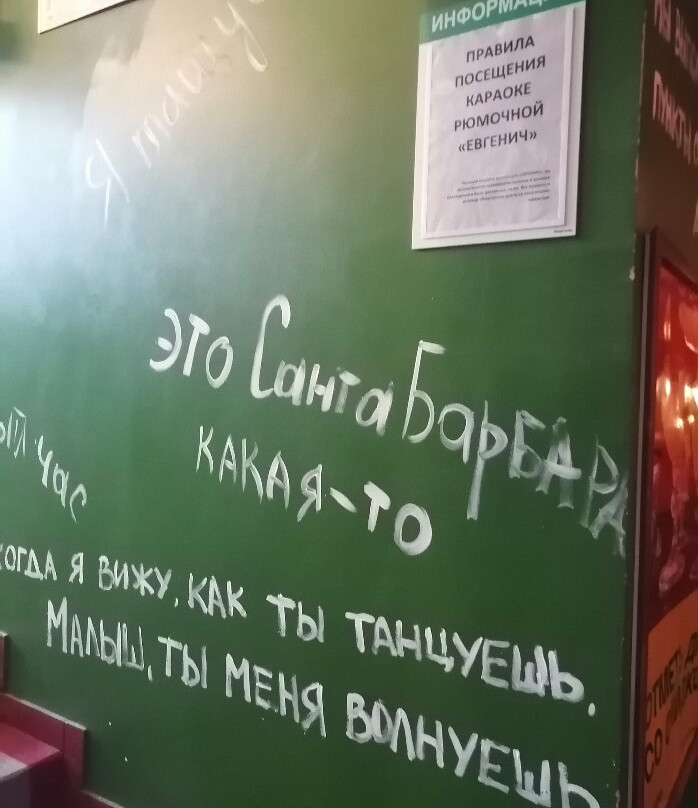 ИНФОРМАЦ
ПРАВИЛА
ПОСЕЩЕНИЯ
КАРАОКЕ
РЮМОЧНОЙ
«ЕВГЕНИЧ»
Я танцу
ЭТО Санта БарБАРА
КАКАЯ-ТО
ый час
КОГДА Я ВИЖУ, КАК ТЫ ТАНЦУЕШЬ.
МАЛЫШ, ТЫ МЕНЯ ВОЛНУЕШЬ